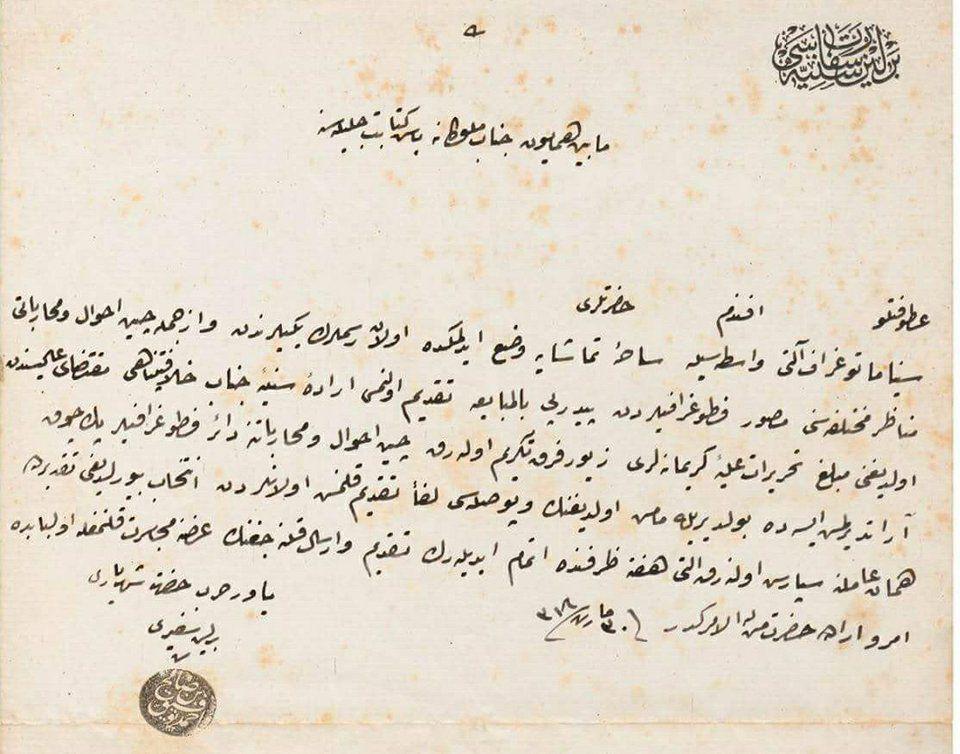 برلین سفارت سنیه‌سی
مابین همایون جناب ملوکانه باش کتابت جلیله‌سنه
عطوفتلو افندم حضرتلری
سیناماتوغراف آلتی واسطه‌سیله ساحۀ تماشایه وضع ایدلمکده اولان رسملرك یکیلرندن و از جمله چین احوال و محارباتی
مناظر مختلفه‌سی مصور فطوغرافیلردن پیدرپی بالمبایعه تقدیم اولنمسی ارادۀ سنیۀ جناب خلافتپناهی مقتضای عالیسندن
اولدیغنی مبلغ تحریرات علیۀ کریمانه‌لری زیور فرق تکریم اوله‌رق چین احوال و محارباتنه دائر فطوغرافیلر پك چوق
آراتدیرلمش ایسه ده بولدیریله‌مامش اولدیغندن و پوصله‌سی لفاً تقدیم قلنمش اولانلردن انتخاب بیوریلدیغی تقدیرده
همان عاملنه سپارش اولنه‌رق التی هفته ظرفنده اتمام ایدیله‌رك تقدیم و ارسال قلنه‌جغنك عرضنه مجاسرت قلنمغله اولبابده
امر و اراده حضرت من له الامرکدر ۳۰ مارت ۳۱۸
یاور حرب حضرت شهریاری
برلین سفیری